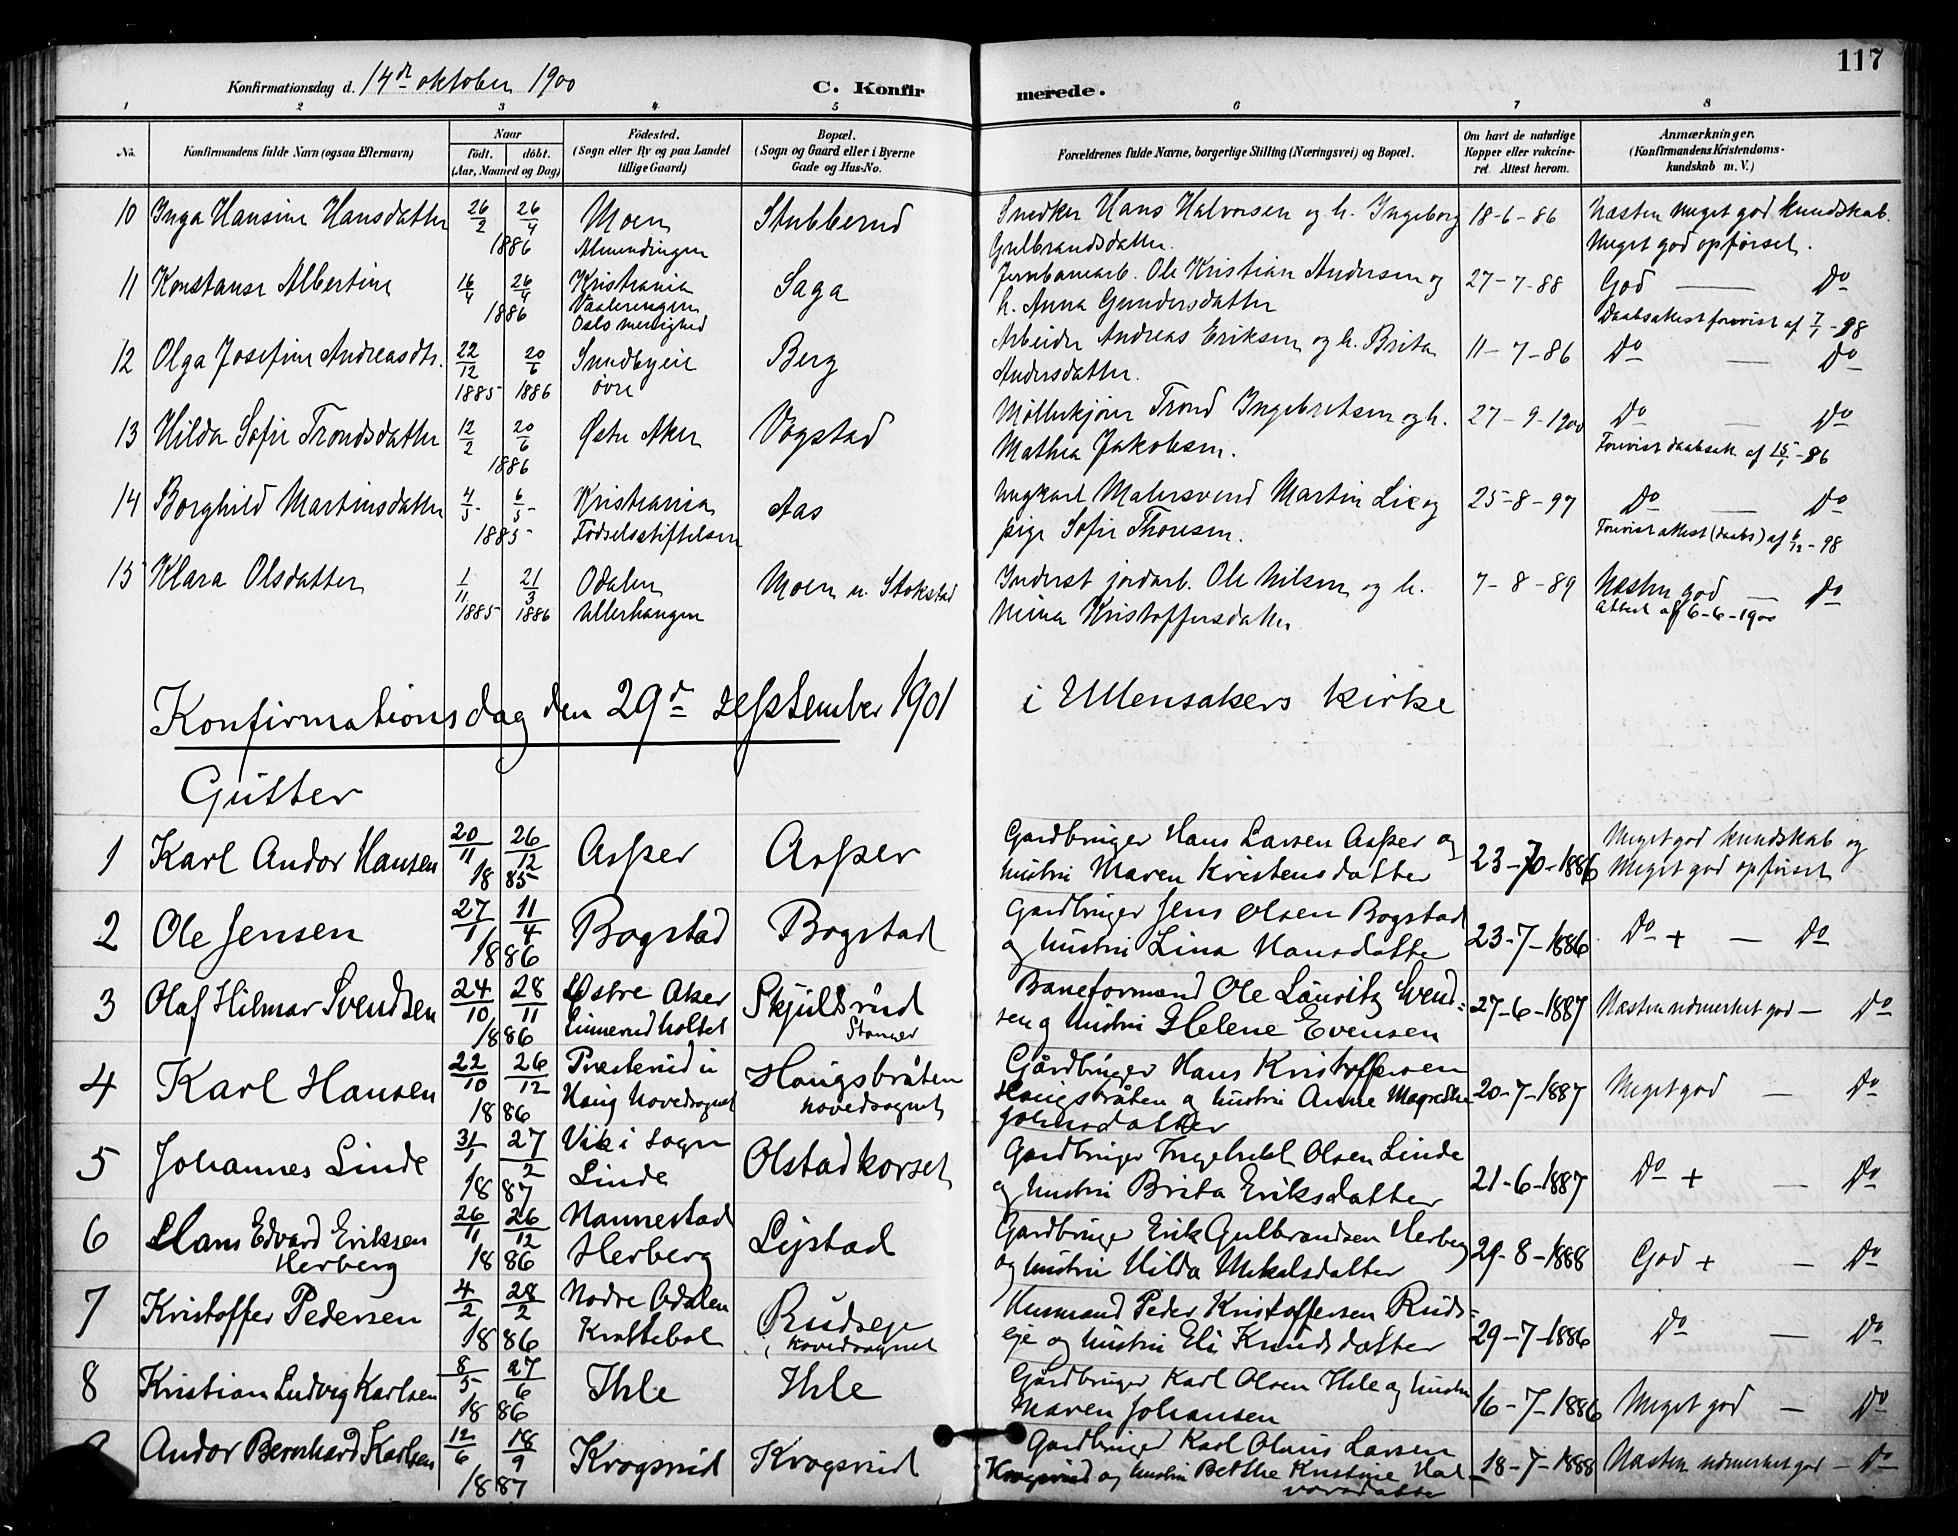 117
Konfirmationsdag d. 14de oktober 1900
C. Konfirmerede.
1 2 3 4 5 6 7 8
No.
Konfirmandens fulde Navn (ogsaa Efternavn)
Naar
født. døbt.
(Aar, Maaned og Dag)
Fødested.
(Sogn eller By og paa Landet
tillige Gaard)
Bopæl.
(Sogn og Gaard eller i Byerne
Gade og Hus-No.
Forældrenes fulde Navne, borgerlige Stilling (Næringsvei) og Bopæl.
Om havt de naturlige
Kopper eller vakcine-
ret. Attest herom.
Anmærkninger.
(Konfirmandens Kristendoms-
kundskab m. V.)
10 Inga Hansine Hansdatter 26/2 26/4 Moen Stubberud Snedker Hans Halvorsen og h. Ingeborg 18-6-86 Næsten meget god kundskab.
1886 Almendingen Gulbrandsdatter. Meget god opførsel.
11 Konstanse Albertine 16/4 26/4 Kristiania Saga Jernbanearb. Ole Kristian Andersen og 27-7-88 God — Do
1886 Vaalerengen h. Anna Gundersdatter
Oslo menighed Daabsattest forevist af 7/1-98
12 Olga Josefine Andreasdtr. 22/12 20/6 Sundbyeie Berg Arbeider Andreas Eriksen og h. Brita 11-7-86 Do — Do
1885 1886 øvre Andersdatter.
13 Hilda Sofie Trondsdatter 12/2 20/6 Østre Aker Vogstad Møllekjører Trond Ingebretsen og h. 27-9-1900 Do — Do
1886 Mathea Jakobsen. Forevist daabsatt. af 15/1-86
14 Borghild Martinsdatter 4/5 6/5 Kristiania Aas ungkarl Malersvend Martin Lie og 25-8-97 Do — Do
1885 Fødselsstiftelsen pige Sofie Thoresen. Forevist attest (daabs) af 6/12-98
15 Klara Olsdatter 1/11 21/3 Odalen Moen u. Stokstad Inderst jordarb. Ole Nilsen og h. 7-8-89 Næsten god — Do
1885 1886 Ullerhaugen Mina Kristoffersdatter Attest af 6-6-1900
Konfirmationsdag den 29de september 1901 i Ullensakers kirke
Gutter
1 Karl Andor Hansen 20/11 26/12 Asper Asper Gardbruger Hans Larsen Asper og 23-10-1886 Meget god kundskab og
1885 hustru Maren Kristensdatter Meget god opførsel
2 Ole Jensen 27/1 11/4 Bogstad Bogstad Gardbruger Jens Olsen Bogstad 23-7-1886 Do + — Do
1886 og hustru Lina Hansdatter
3 Olaf Hilmar Svendsen 24/10 28/11 Østre Aker Skjulsrud Baneformand Ole Lauritz Svend= 27-6-1887 Næsten udmerket god — Do
1886 Linnerudholtet sen og hustru Helene Evensen
4 Karl Hansen 22/10 26/12 Præsterud u Haugsbråten Gårdbruger Hans Kristoffersen 20-7-1887 Meget god — Do
1886 Haug hovedsognet hovedsognet Haugsbråten og hustru Anne Magrethe
Johnsdatter
5 Johannes Linde 31/1 27/2 Vik i Sogn Olstadkorset Gardbruger Ingebrikt Olsen Linde 21-6-1887 Do + — Do
1887 Linde og hustru Brita Eriksdatter
6 Hans Edvard Eriksen 26/11 26/12 Nannestad Lystad Gardbruger Erik Gulbrandsen Herberg 29-8-1888 God + — Do
Herberg 1886 Herberg og hustru Hilda Mikalsdatter
7 Kristoffer Pedersen 4/2 28/2 Nodre Odalen Rudseje Husmand Peder Kristoffersen Ruds= 29-7-1886 Do — Do
1886 i hovedsognet eje og hustru Eli Knudsdatter
8 Kristian Ludvig Karlsen 8/5 27/6 Ihle Ihle Gårdbruger Karl Olsen Ihle og hustru 16-7-1886 Meget god — Do
1886 Maren Johansen
Andor Bernhard Karlsen 12/6 18/9 Krogsrud Krogsrud Gardbruger Karl Olaus Larsen 18-7-1888 Næsten udmerket god — Do
1887 Krogsrud og hustru Berthe Kristine Hal
vorsdatter